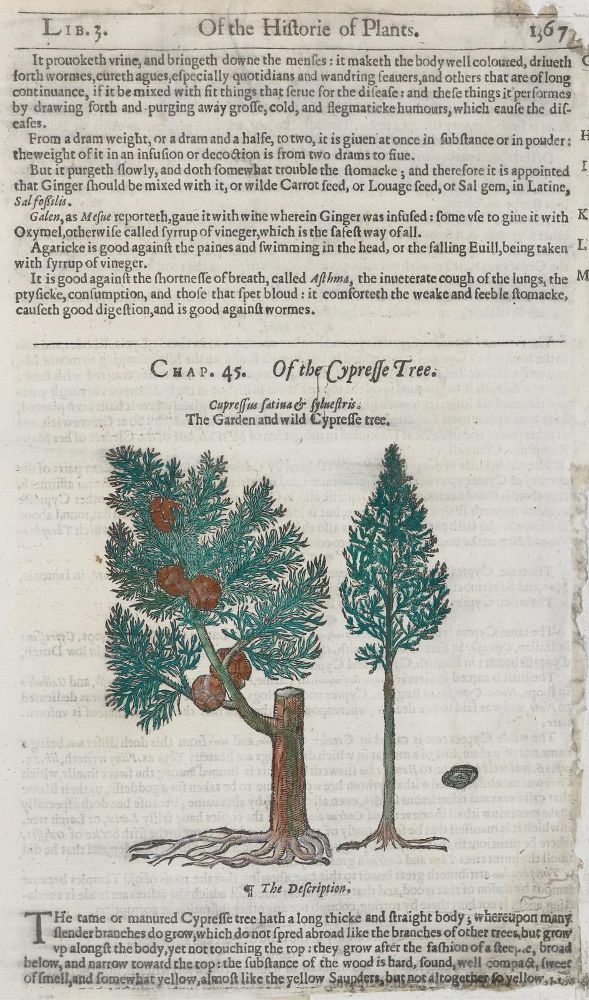 LIB. 3. Of the Hiſtorie of Plants. 1367
It prouoketh vrine, and bringeth downe the menſes : it maketh the body well coloured, driueth G
forth wormes, cureth agues, eſpecially quotidians and wandring feauers, and others that are of long
continuance, if it be mixed with fit things that ſerue for the diſeaſe : and theſe things it performes
by drawing forth and purging away groſſe, cold, and flegmaticke humours, which cauſe the diſ-
eaſes.
From a dram weight, or a dram and a halfe, to two, it is giuen at once in ſubſtance or in pouder : H
the weight of it in an infuſion or decoction is from two drams to fiue.
But it purgeth ſlowly, and doth ſomewhat trouble the ſtomacke ; and therefore it is appointed I
that Ginger ſhould be mixed with it, or wilde Carrot ſeed, or Louage ſeed, or Sal gem, in Latine,
Sal foſſilis.
Galen, as Meſue reporteth, gaue it with wine wherein Ginger was infuſed : ſome vſe to giue it with K
Oxymel, otherwiſe called ſyrrup of vineger, which is the ſafeſt way of all.
Agaricke is good againſt the paines and ſwimming in the head, or the falling Euill, being taken L
with ſyrrup of vineger.
It is good againſt the ſhortneſſe of breath, called Aſthma, the inueterate cough of the lungs, the M
ptyſicke, conſumption, and thoſe that ſpet bloud : it comforteth the weake and feeble ſtomacke,
cauſeth good digeſtion, and is good againſt wormes.
CHAP. 45. Of the Cypreſſe Tree.
Cupreſſus ſatiua & ſylueſtris.
The Garden and wild Cypreſſe tree.
¶ The Deſcription.
THe tame or manured Cypreſſe tree hath a long thicke and ſtraight body ; whereupon many
ſlender branches do grow, which do not ſpred abroad like the branches of other trees, but grow
vp alongſt the body, yet not touching the top : they grow after the faſhion of a ſteeple, broad
below, and narrow toward the top : the ſubſtance of the wood is hard, ſound, well compact, ſweet
of ſmell, and ſomewhat yellow, almoſt like the yellow Saunders, but not altogether ſo yellow,